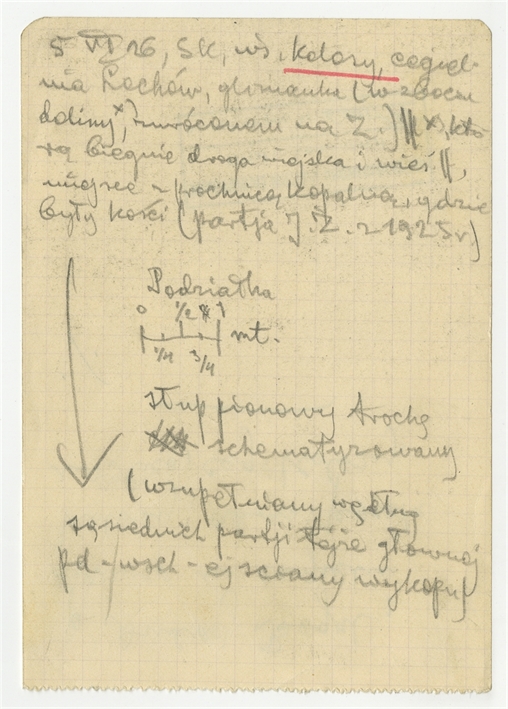 5 VI 26, SK, wś. Kolosy, cegiel-
nia Lochów, glinianka (w zboczu
doliny x), zwróconem na Z.) || x) któ
rą biegnie droga wiejska i wieś ||,
miejsce z próchnicą kopalną, gdzie
były kości (partja J. Ż. z 1925 r.)
Podziałka
0 1/2 1
mt.
1/4 3/4
słup pionowy trochę
schematyzowany
(uzupełniany według
sąsiednich partji tejże głównej
pd-wsch-ej ściany wykopu)